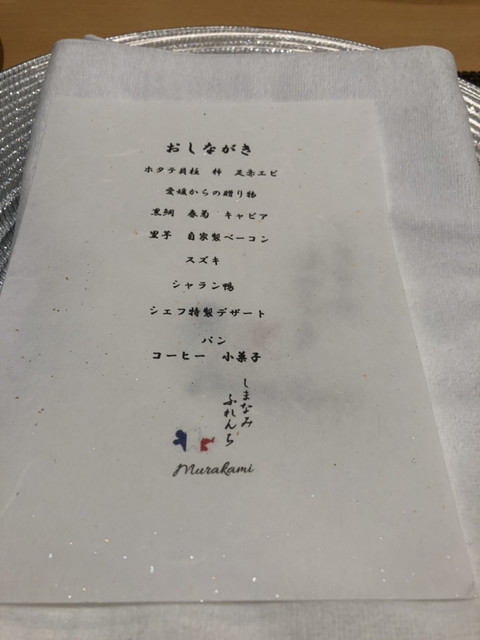 おしながき
ホタテ貝柱 柿 足赤エビ
愛媛からの贈り物
黒鯛 春菊 キャビア
里芋 自家製ベーコン
スズキ
シャラン鴨
シェフ特製デザート
パン
コーヒー 小菓子
しまなみ
ふれんち
Murakami